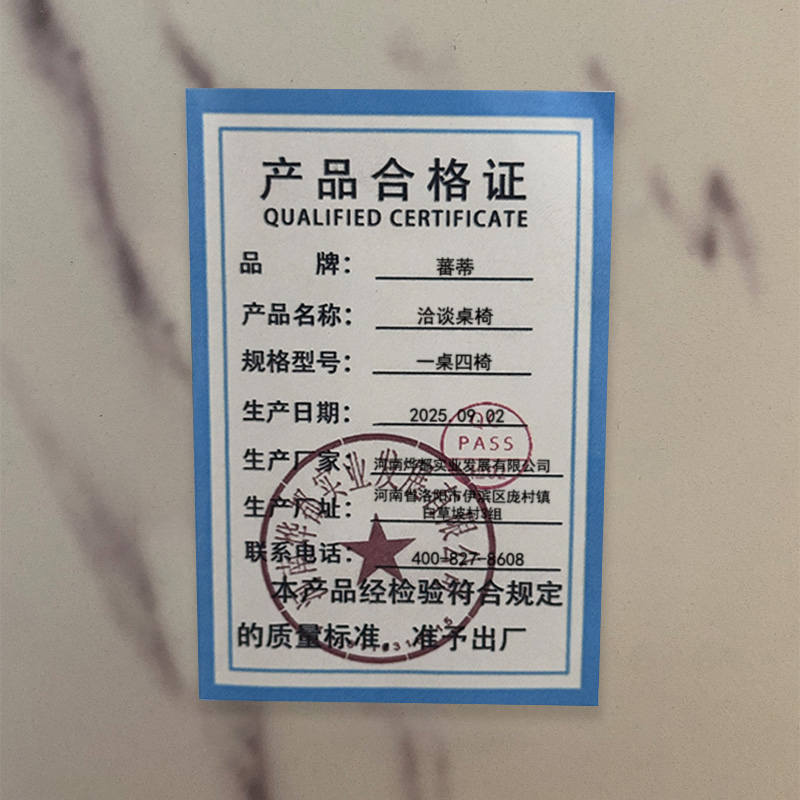 产品合格证
QUALIFIED CERTIFICATE
品 牌： 蕃蒂
产品名称： 洽谈桌椅
规格型号： 一桌四椅
生产日期： 2025.09.02
PASS
生产厂家： 河南烨都实业发展有限公司
生产厂址： 河南省洛阳市伊滨区庞村镇
白草坡村3组
联系电话： 400-827-8608
本产品经检验符合规定
的质量标准，准予出厂
河南烨都实业发展有限公司